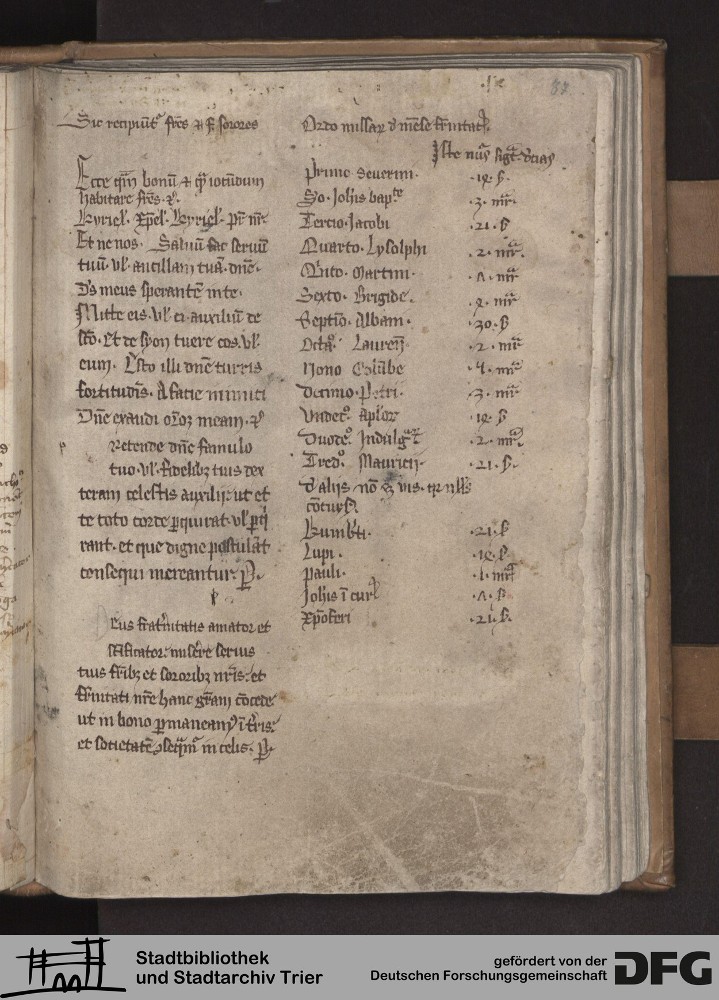 Sic recipiūt frēs et sorores
Ecce q̄m bonū et q̄ iocūdum
habitare frēs.
Kyriel. Xp̄el. Kyriel. Pr̄ nr̄.
Et ne nos. Saluū fac seruū
tuū. vl. ancillam tuā. dn̄e.
Ds̄ meus sperantē in te.
Mitte eis. vl. ei auxiliū de
sc̄o. Et de syon tuere eos. vl.
eum. Esto illi dn̄e turris
fortitudīs. A facie inimici
Dn̄e exaudi or̄oꝫ meam.
Retende dn̄e famulo
tuo. vl. fidelibꝫ tuis dex
teram celestis auxilij. ut et
te toto corde ꝑquirat. vl. ꝑq̄
rant. et que digne postulāt
consequi mereantur. P.
Eus frat̄nitatis amator et
sc̄ificator. miserere seruis
tuis fr̄ibꝫ et sororibꝫ nr̄is. et
fr̄nitati nr̄e hanc gr̄am cōcede
ut in bono ꝑmaneant in t̄ris.
et societatē in celis. P.
88
Ordo missaꝝ de mēse fr̄nitatis
Iste
Primo Seuerini.
So. Joh̄is bapt̄e .3. mr̄.
Tercio Jacobi .21. ß
Quarto. Lysolphi .2. mr̄.
Q̄nto. Martini. .Λ. mr̄
Sexto. Brigide. .2. mr̄
Septīo. Albani. .30. ß
Octaº. Lauren̄ .2. mr̄
Nono Colūbe .4. mr̄
Decimo. Petri. .3. mr̄
Vndecº. Apl̄or
Duodeº. Indulḡ .2. mr̄.
Tredº. Mauricij. .21. ß.
De alijs nō
Kunib̄ti. .21. ß
Lupi.
Pauli. .1. mr̄
Joh̄is ī cur̄ .Λ. ß
Xp̄oferi .21. ß.
Stadtbibliothek
und Stadtarchiv Trier
gefördert von der
Deutschen Forschungsgemeinschaft
DFG